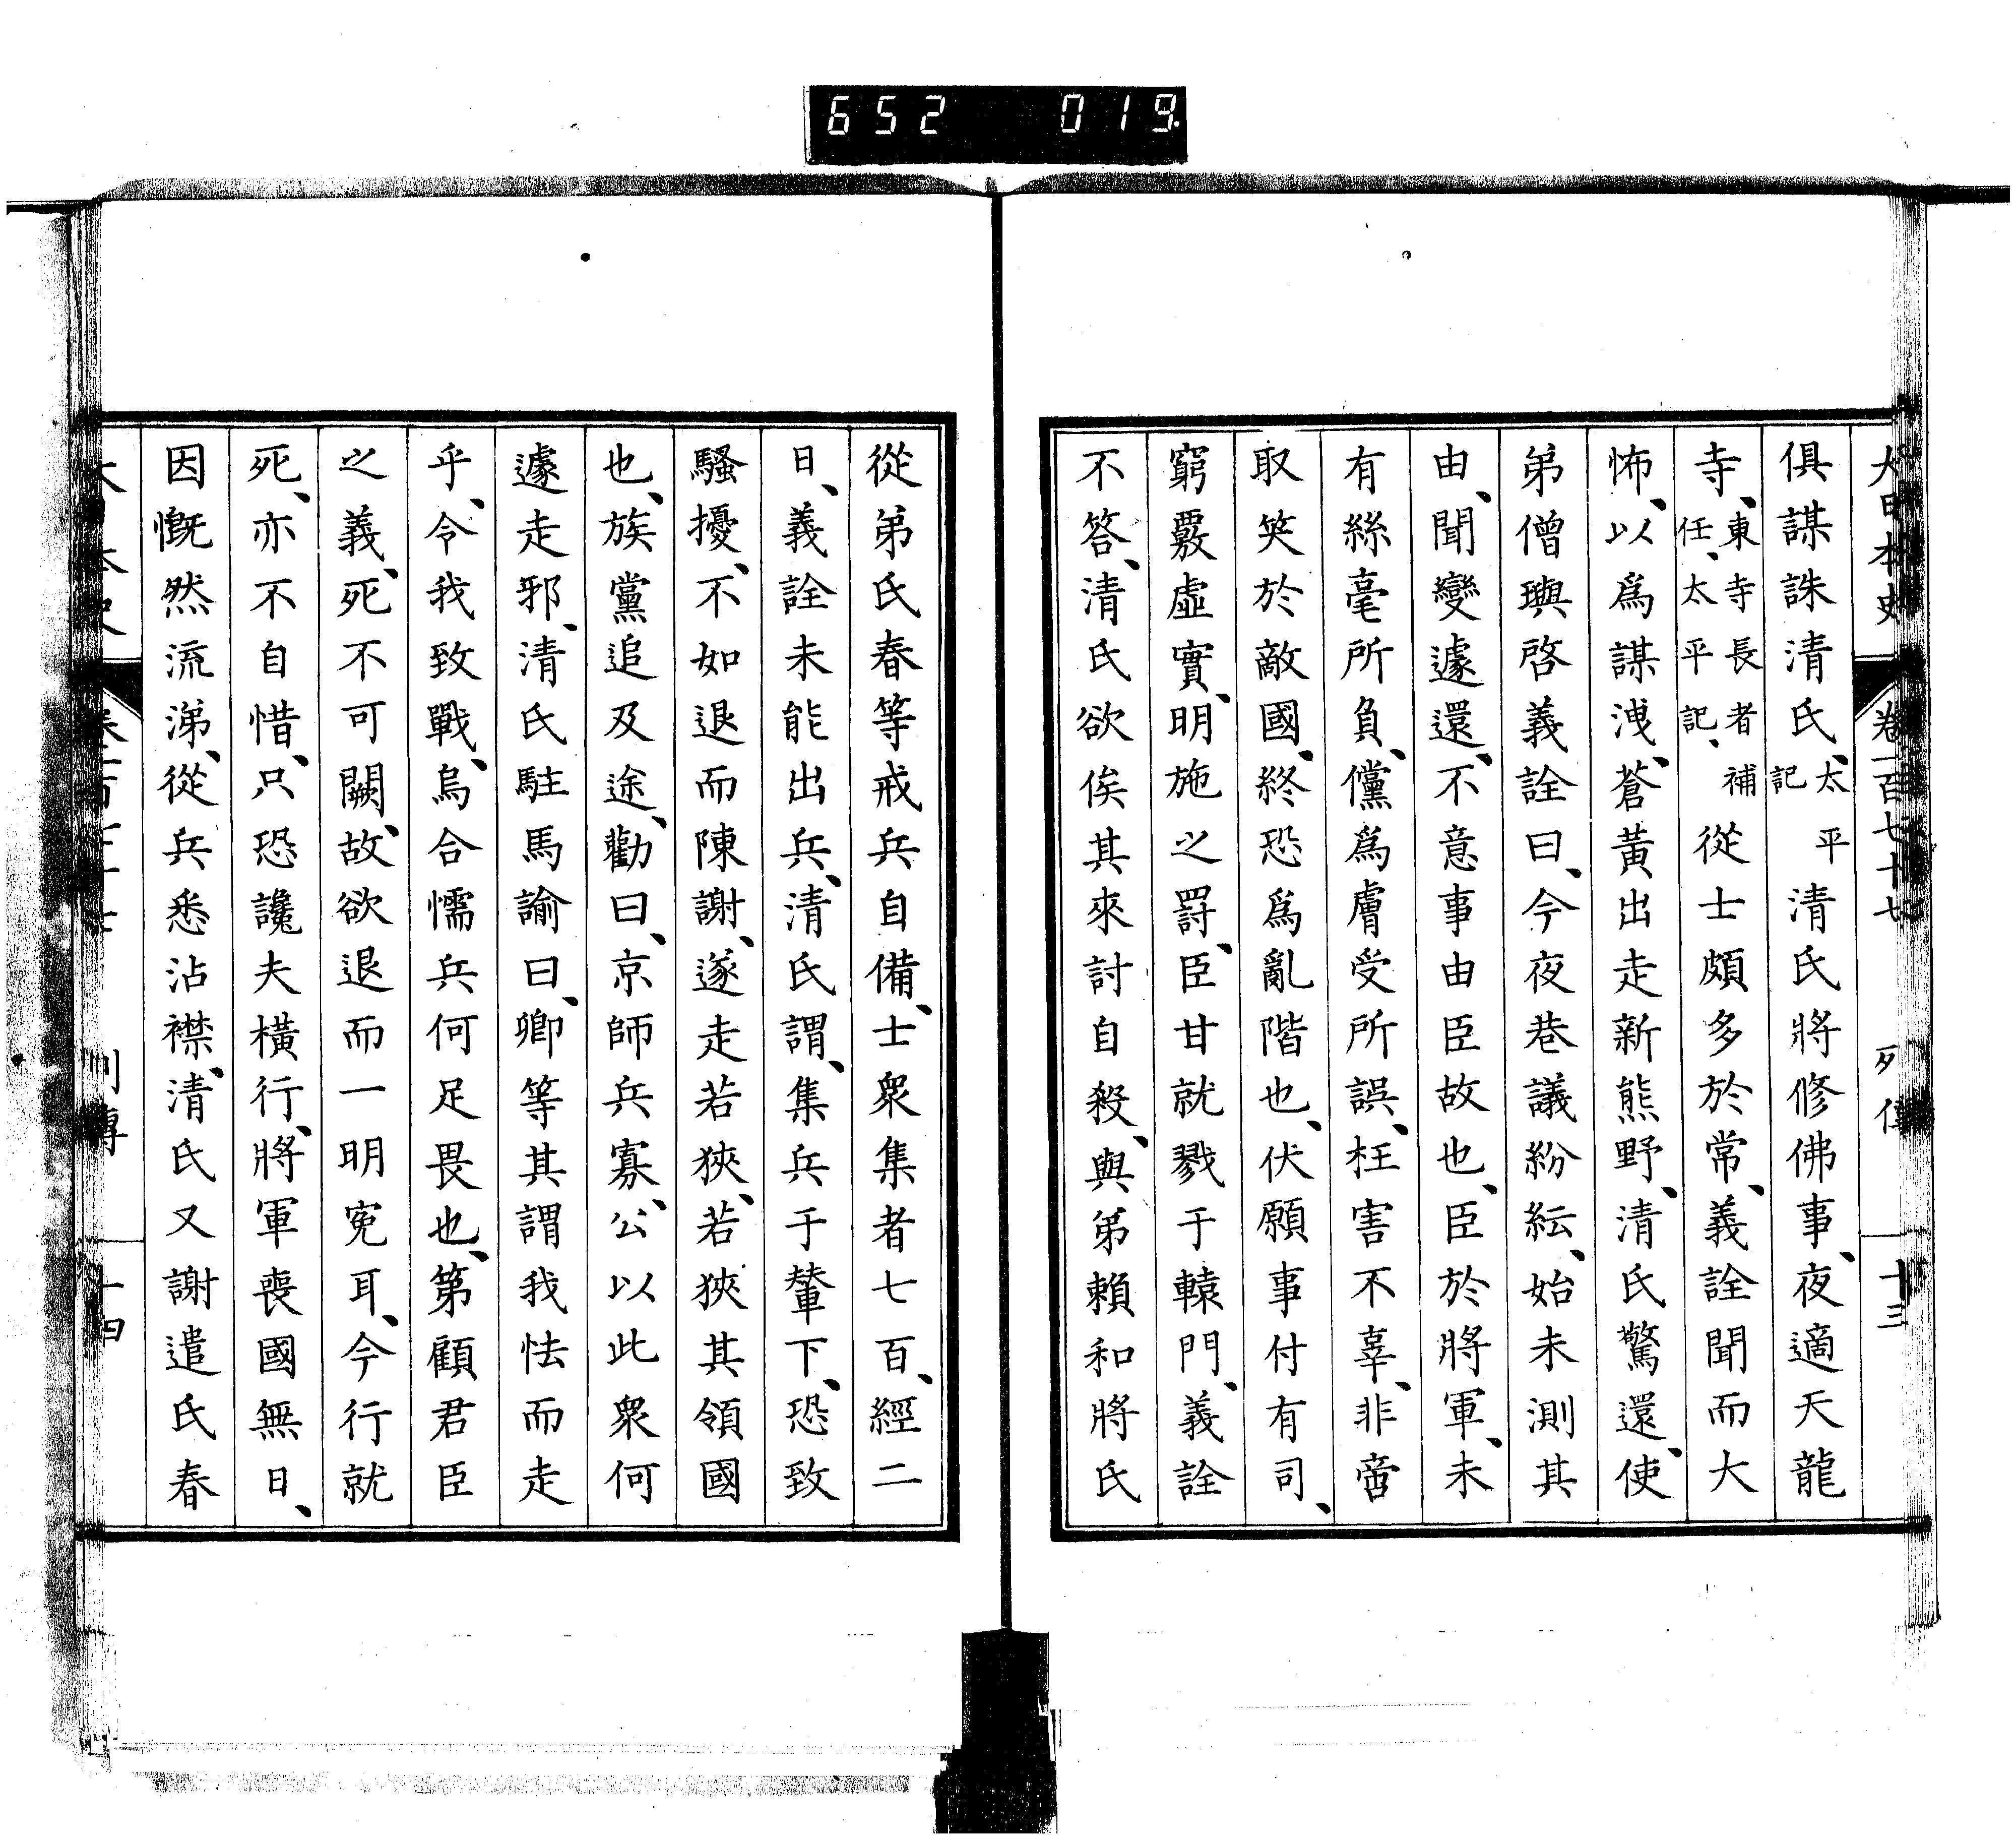 652 019.
大日本史 卷一百七十七 列傳 十三
俱謀誅清氏、太平記清氏將修佛事、夜適天龍
寺、東寺長者補任、太平記、從士頗多於常、義詮聞而大
怖、以爲謀洩、蒼黃出走新熊野、清氏驚還、使
弟僧璵啓義詮曰、今夜巷議紛紜、始未測其
由、聞變遽還、不意事由臣故也、臣於將軍、未
有絲毫所負、儻爲膚受所誤、枉害不辜、非啻
取笑於敵國、終恐爲亂階也、伏願事付有司、
窮覈虛實、明施之罸、臣甘就戮于轅門、義詮
不答、清氏欲俟其來討自殺、與弟賴和將氏
從弟氏春等戒兵自備、士衆集者七百、經二
日、義詮未能出兵、清氏謂、集兵于輦下、恐致
騷擾、不如退而陳謝、遂走若狹、若狹其領國
也、族黨追及途、勸曰、京師兵寡、公以此衆何
遽走邪、清氏駐馬諭曰、卿等其謂我怯而走
乎、令我致戰、烏合懦兵何足畏也、第顧君臣
之義、死不可闕、故欲退而一明寃耳、今行就
死、亦不自惜、只恐讒夫橫行、將軍喪國無日、
因慨然流涕、從兵悉沾襟、清氏又謝遣氏春
列傳 十四